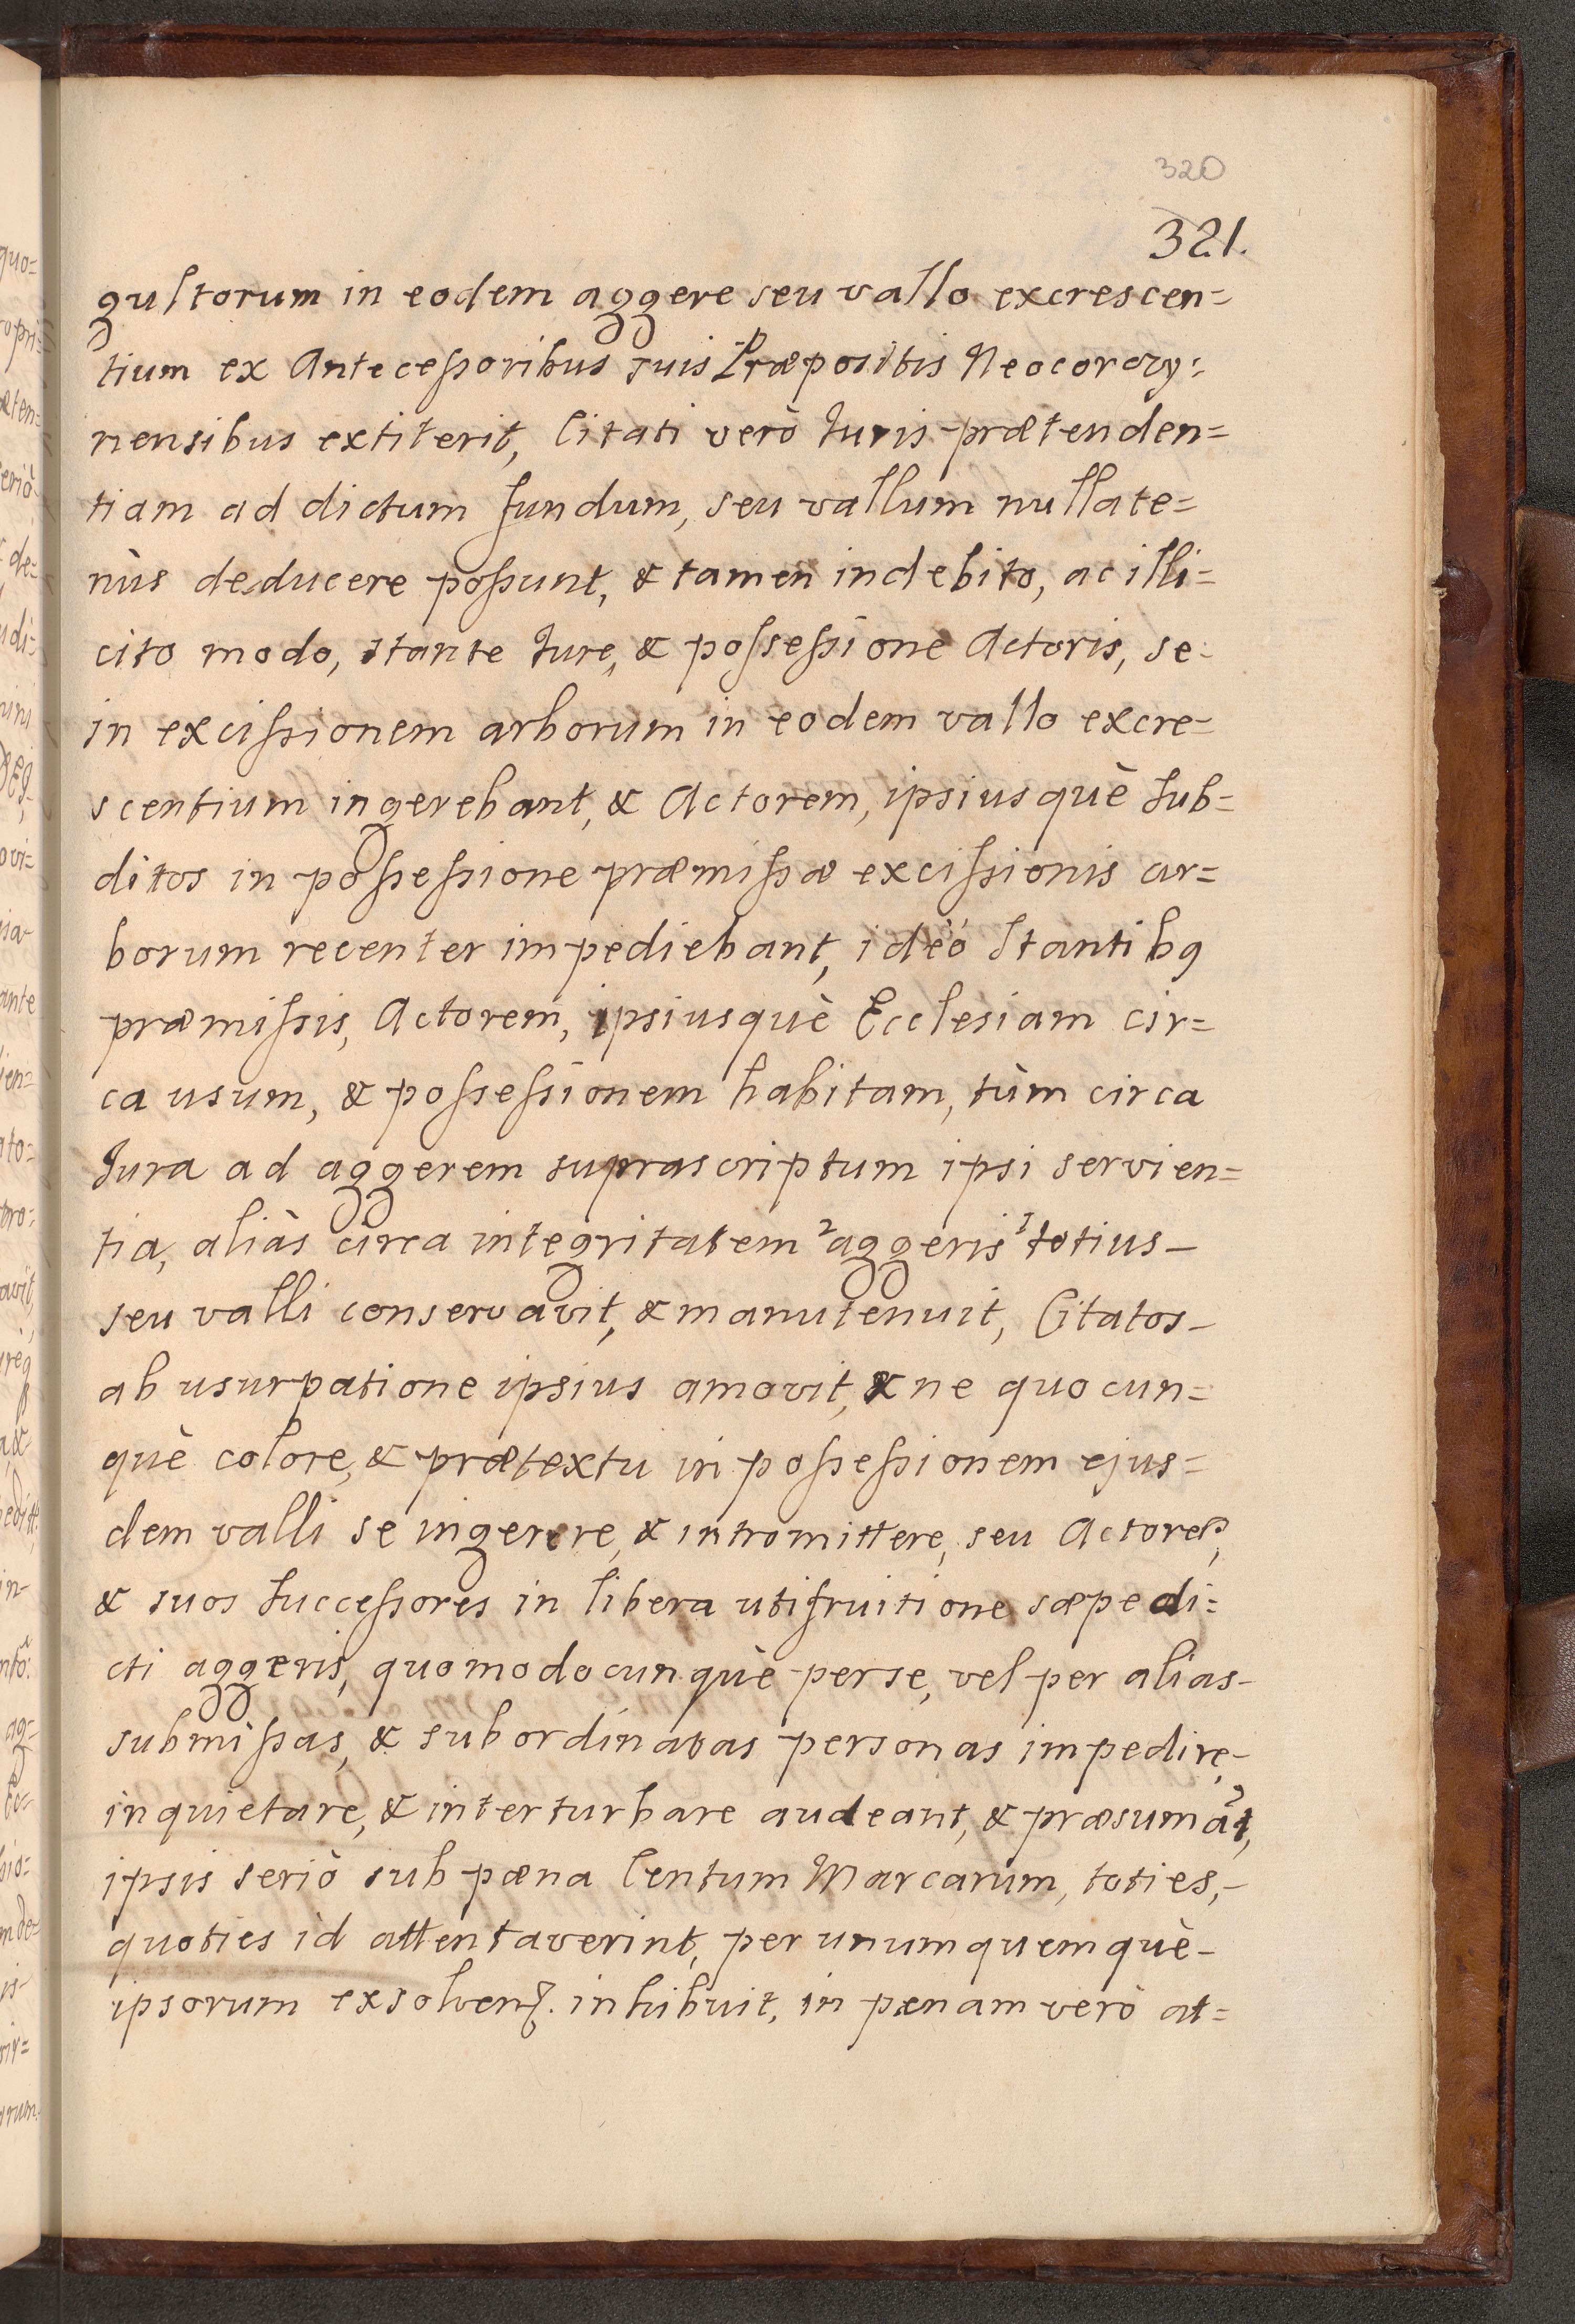 320
321.
gultorum in eodem aggere seu vallo excrescen=
tium ex Antecessoribus suis Præpositis Neocorczy=
nensibus extiterit, Citati verò Juris prætenden=
tiam ad dictum fundum, seu vallum nullate=
nùs deducere possunt, & tamen indebito, ac illi=
cito modo, stante Jure, & possessione Actoris, se
in excissionem arborum in eodem vallo excre=
scentium ingerebant, & Actorem, ipsiusquè Sub=
ditos in possessione præmissæ excissionis ar=
borum recenter impediebant, ideò Stantibꝰ
præmissis, Actorem, ipsiusquè Ecclesiam cir=
ca usum, & possessionem habitam, tùm circa
Jura ad aggerem suprascriptum ipsi servien=
tia, aliàs circa integritatem ²aggeris ¹totius
seu valli conservavit, & manutenuit, Citatos
ab usurpatione ipsius amovit, & ne quocun=
què colore, & prætextu in possessionem ejus=
dem valli se ingerere, & intromittere, seu Actorem,
& suos Successores in libera utifruitione sæpedi=
cti aggeris, quomodocunquè per se, vel per alias
submissas, & subordinatas personas impedire,
inquietare, & interturbare audeant, & præsumāt,
ipsis seriò sub pæna Centum Marcarum, toties,
quoties id attentaverint, per unumquemquè
ipsorum exsolven. inhibuit, in pænam verò at=